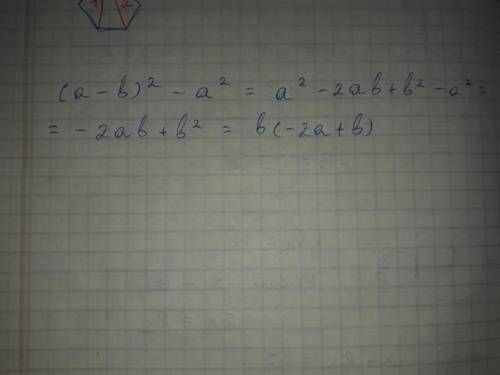 1) 2
(a - b)² - a² = a² - 2ab + b² - a² =
= - 2ab + b² = b(-2a + b)